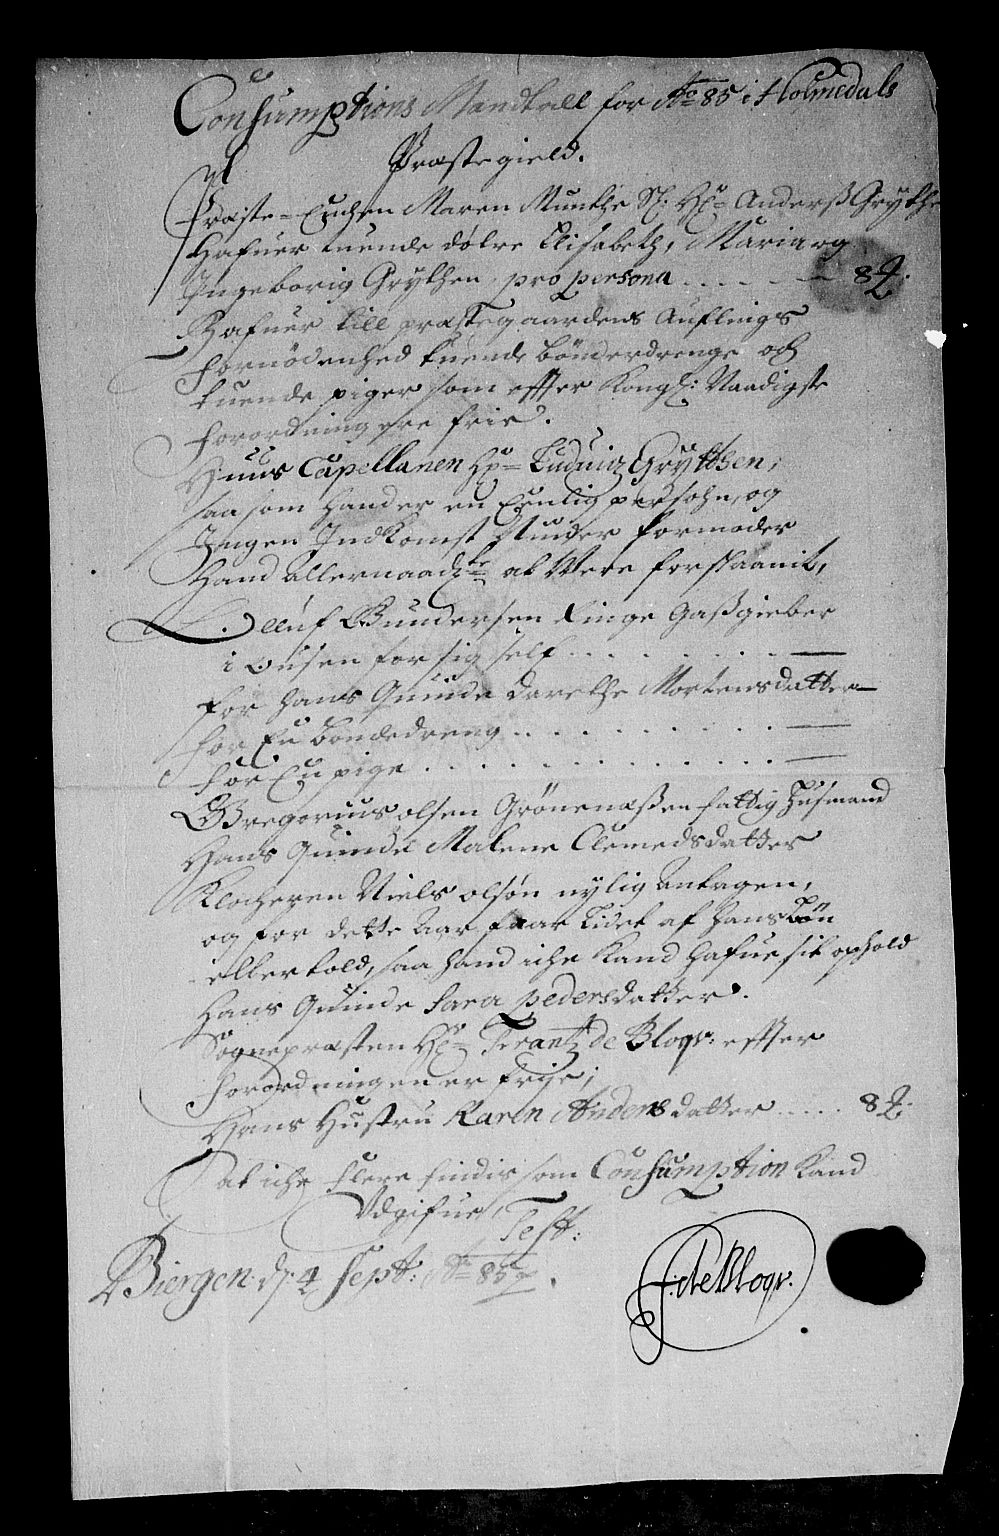 Consumptions Mandtall for Ao 85 i Holmedals
Præstegield.
Præste-Enchen Maren Munthe Sl: Hr: Anderß Grythe
Hafuer tuende døtre Elisabeth, Maria og
Ingeborig Grythen, pro persona . . . . . 8
Hafuer till præstegaardens Auflings
fornødenhed tuende bønderdrenge och
tuende piger som effter Kongl: Naadigste
forordning ere frie.
Huus Capellanen Hr: Ludvig Grythsen;
saasom Hand er en Eenlig persohn, og
Ingen Indkomst Niuder formoder
Hand allernaadste at Were forskaanit,
Olluf Gundersen Ringe Gaßgieber
i Ousen for sig self . . . . . . . . —
for Hans Quinde Darethe Mortensdatter —
for En bondedreng . . . . . . . . —
for En pige . . . . . . . . . . . . —
Gregorius olsen Grønenæßen fattig Husmand
Hans Quinde Malene Clemedsdatter
Klocheren Niels olsøn nylig Antagen,
og for dette Aar faar Lidet af Hans Løn
eller told, saa hand iche Kand hafue sit ophold
Hans Quinde Sara pedersdatter.
Sognepræsten Hr: Frantz de Bloqv: effter
forordningen er frije;
Hans Hustru Karen Andersdatter . . . . . 8
At iche flere findis som Consumption Kand
Udgifue, Test:
Biergen: d: 4 Sept: Ao 85.
F: de Bloqv.